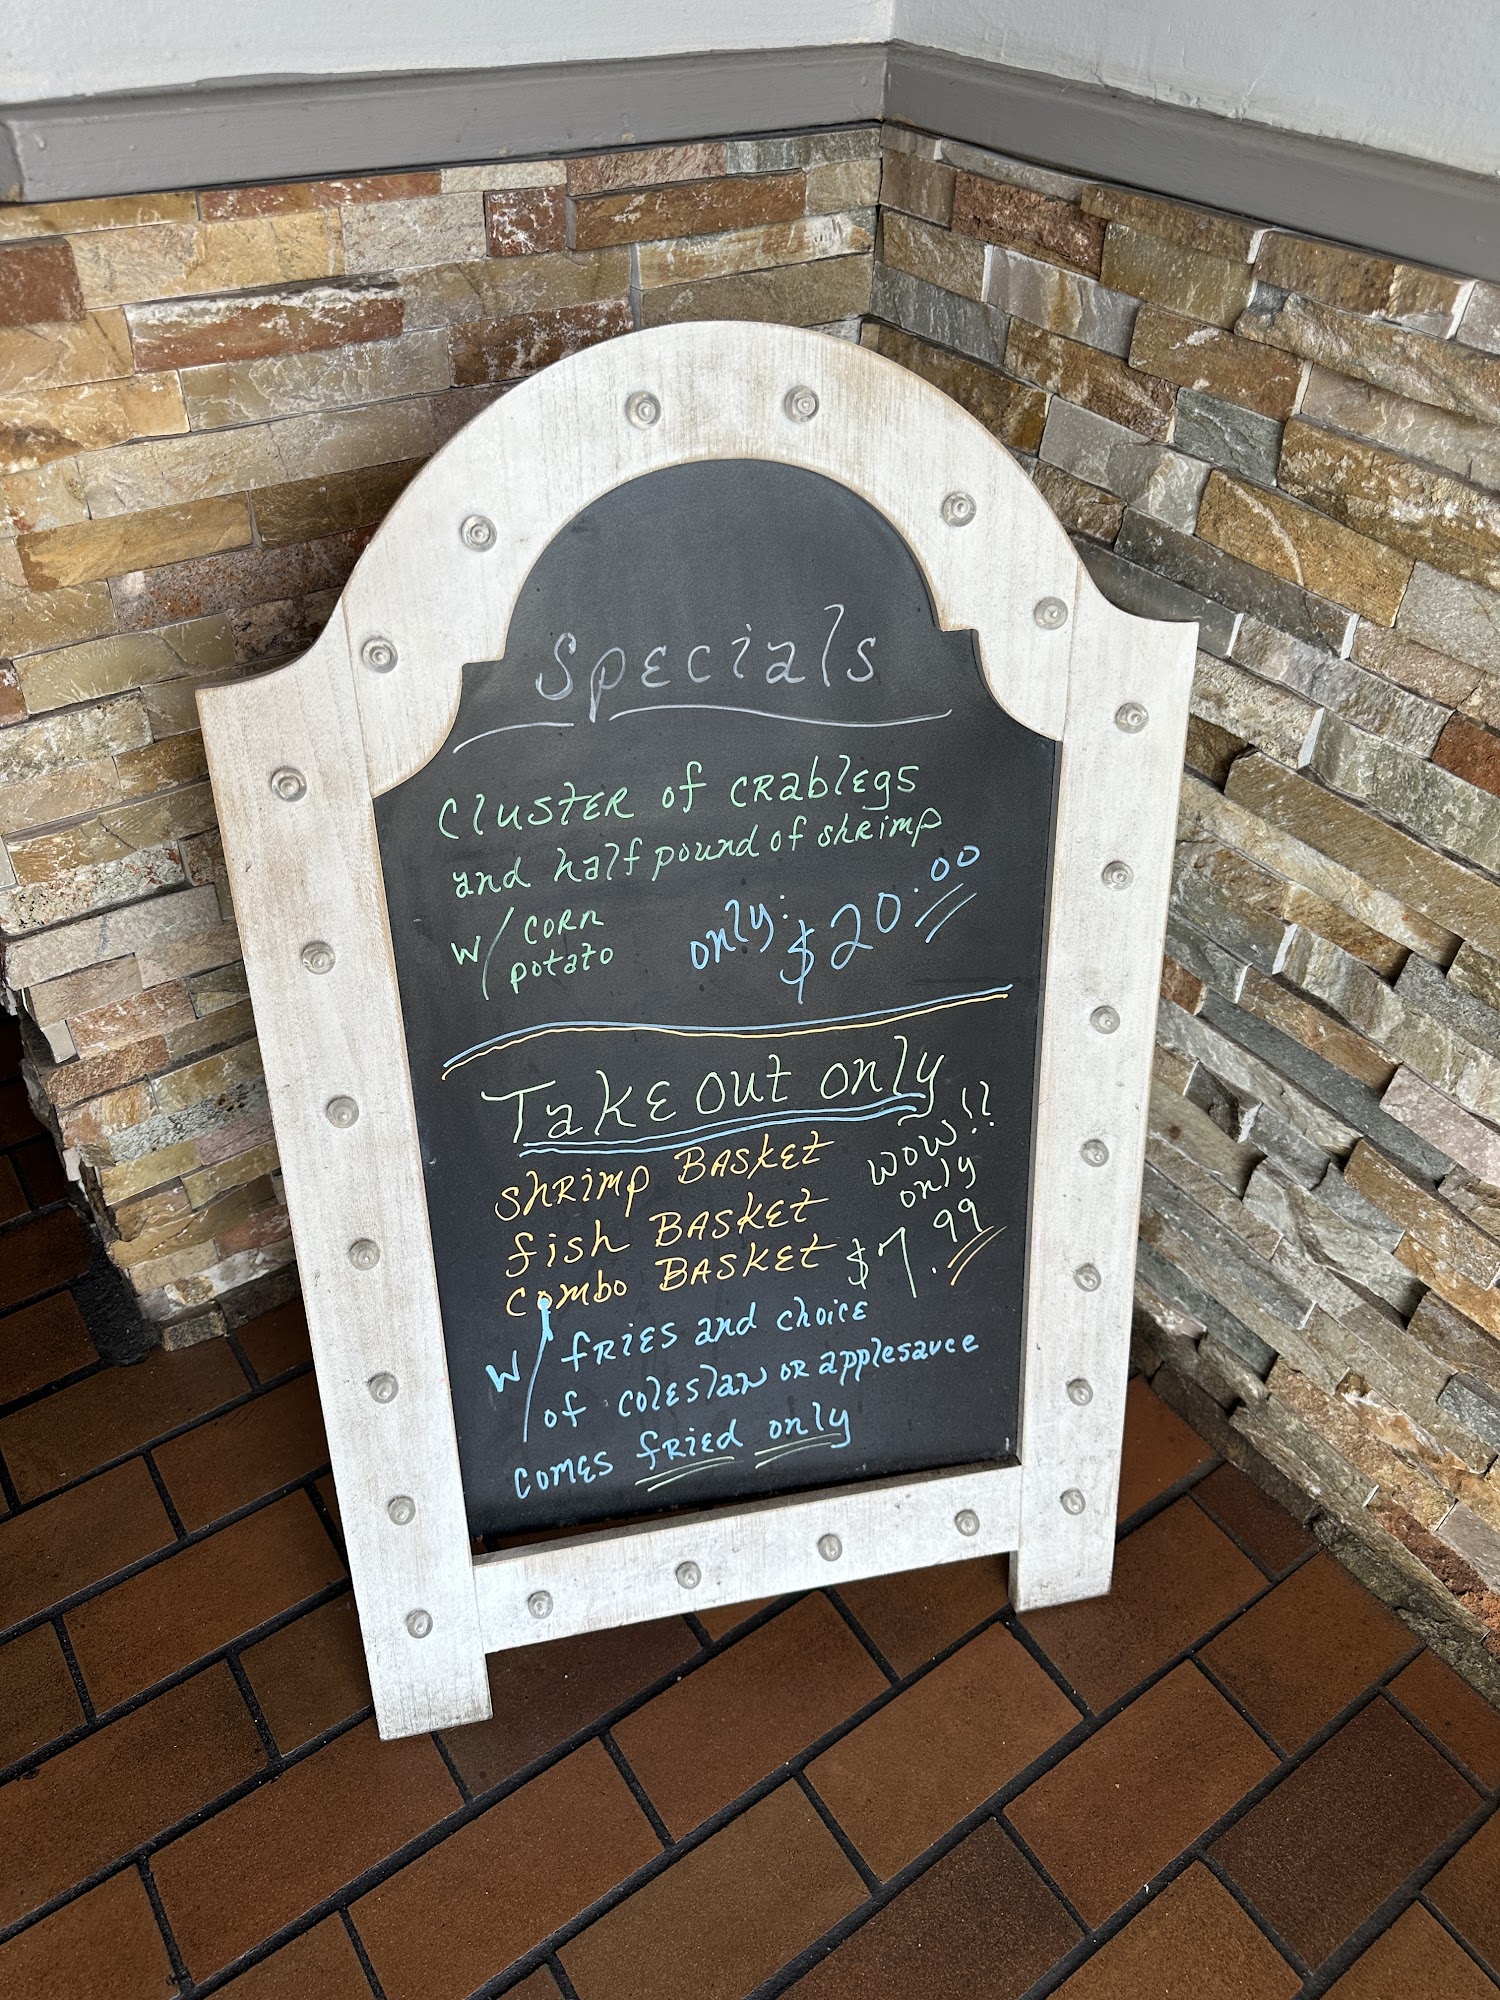 Specials
Cluster of crablegs
and half pound of shrimp
w/ corn
potato
only: $20.00
Take out only
shrimp Basket
fish Basket
combo Basket
wow!!
only
$7.99
w/ fries and choice
of coleslaw or applesauce
comes fried only